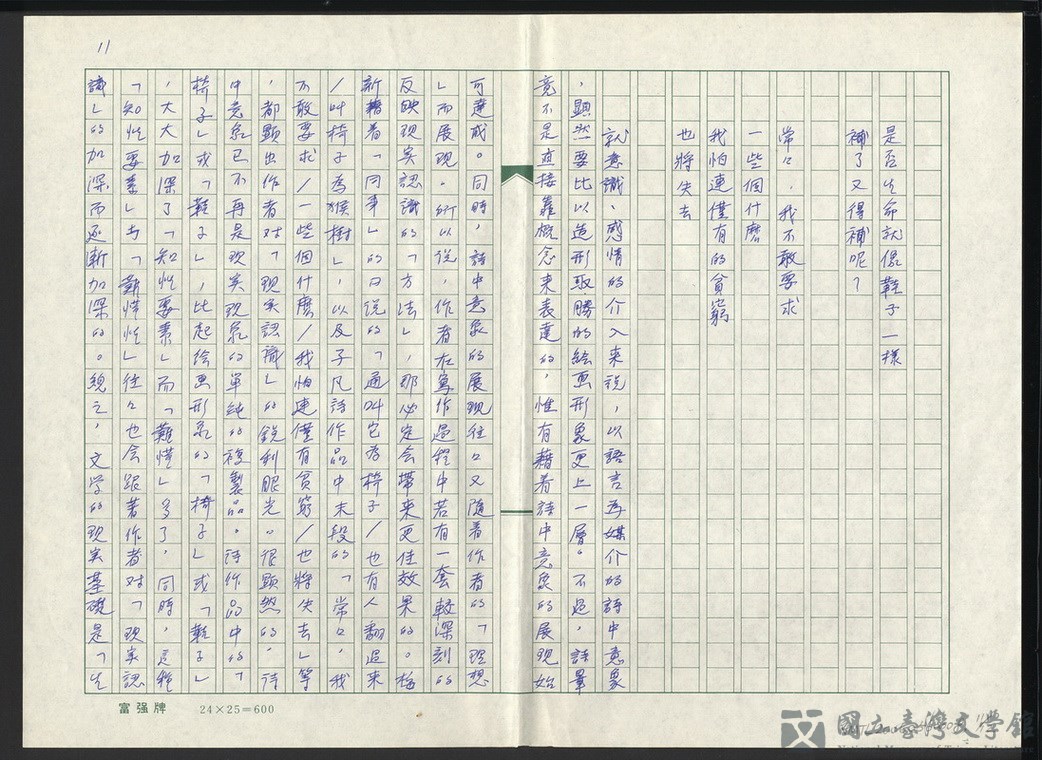 11
是否生命就像鞋子一樣
補了又得補呢?
常常,我不敢要求
一些個什麼
我怕連僅有的貧窮
也將失去
就意識、感情的介入來說,以語言爲媒介的詩中意象
,顯然要比以造形取勝的繪畫形象更上一層。不過,詩畢
竟不是直接靠概念來表達的,惟有藉着詩中意象的展現始
可達成。同時,詩中意象的展現往往又隨着作者的「理想
」而展現。所以說,作者在寫作過程中若有一套較深刻的
反映現實認識的「方法」,那必定會帶來更佳效果的。楊
新藉着「同事」的口說的「通叫它爲椅子/也有人翻過來
/叫椅子為猴樹」,以及子凡詩作品中末段的「常常,我
不敢要求/一些個什麼/我怕連僅有貧窮/也將失去」等
,都顯出作者對「現實認識」的銳利眼光。很顯然的,詩
中意象已不再是現實現象的單純的複製品。詩作品中的「
椅子」或「鞋子」,比起繪畫形象的「椅子」或「鞋子」
,大大加深了「知性要素」而「難懂」多了,同時,這種
「知性要素」与「難懂性」往往也會跟著作者對「現實認
識」的加深而逐漸加深的。總之,文学的現实基礎是「生
富强牌 24×25=600
國立臺灣文學館